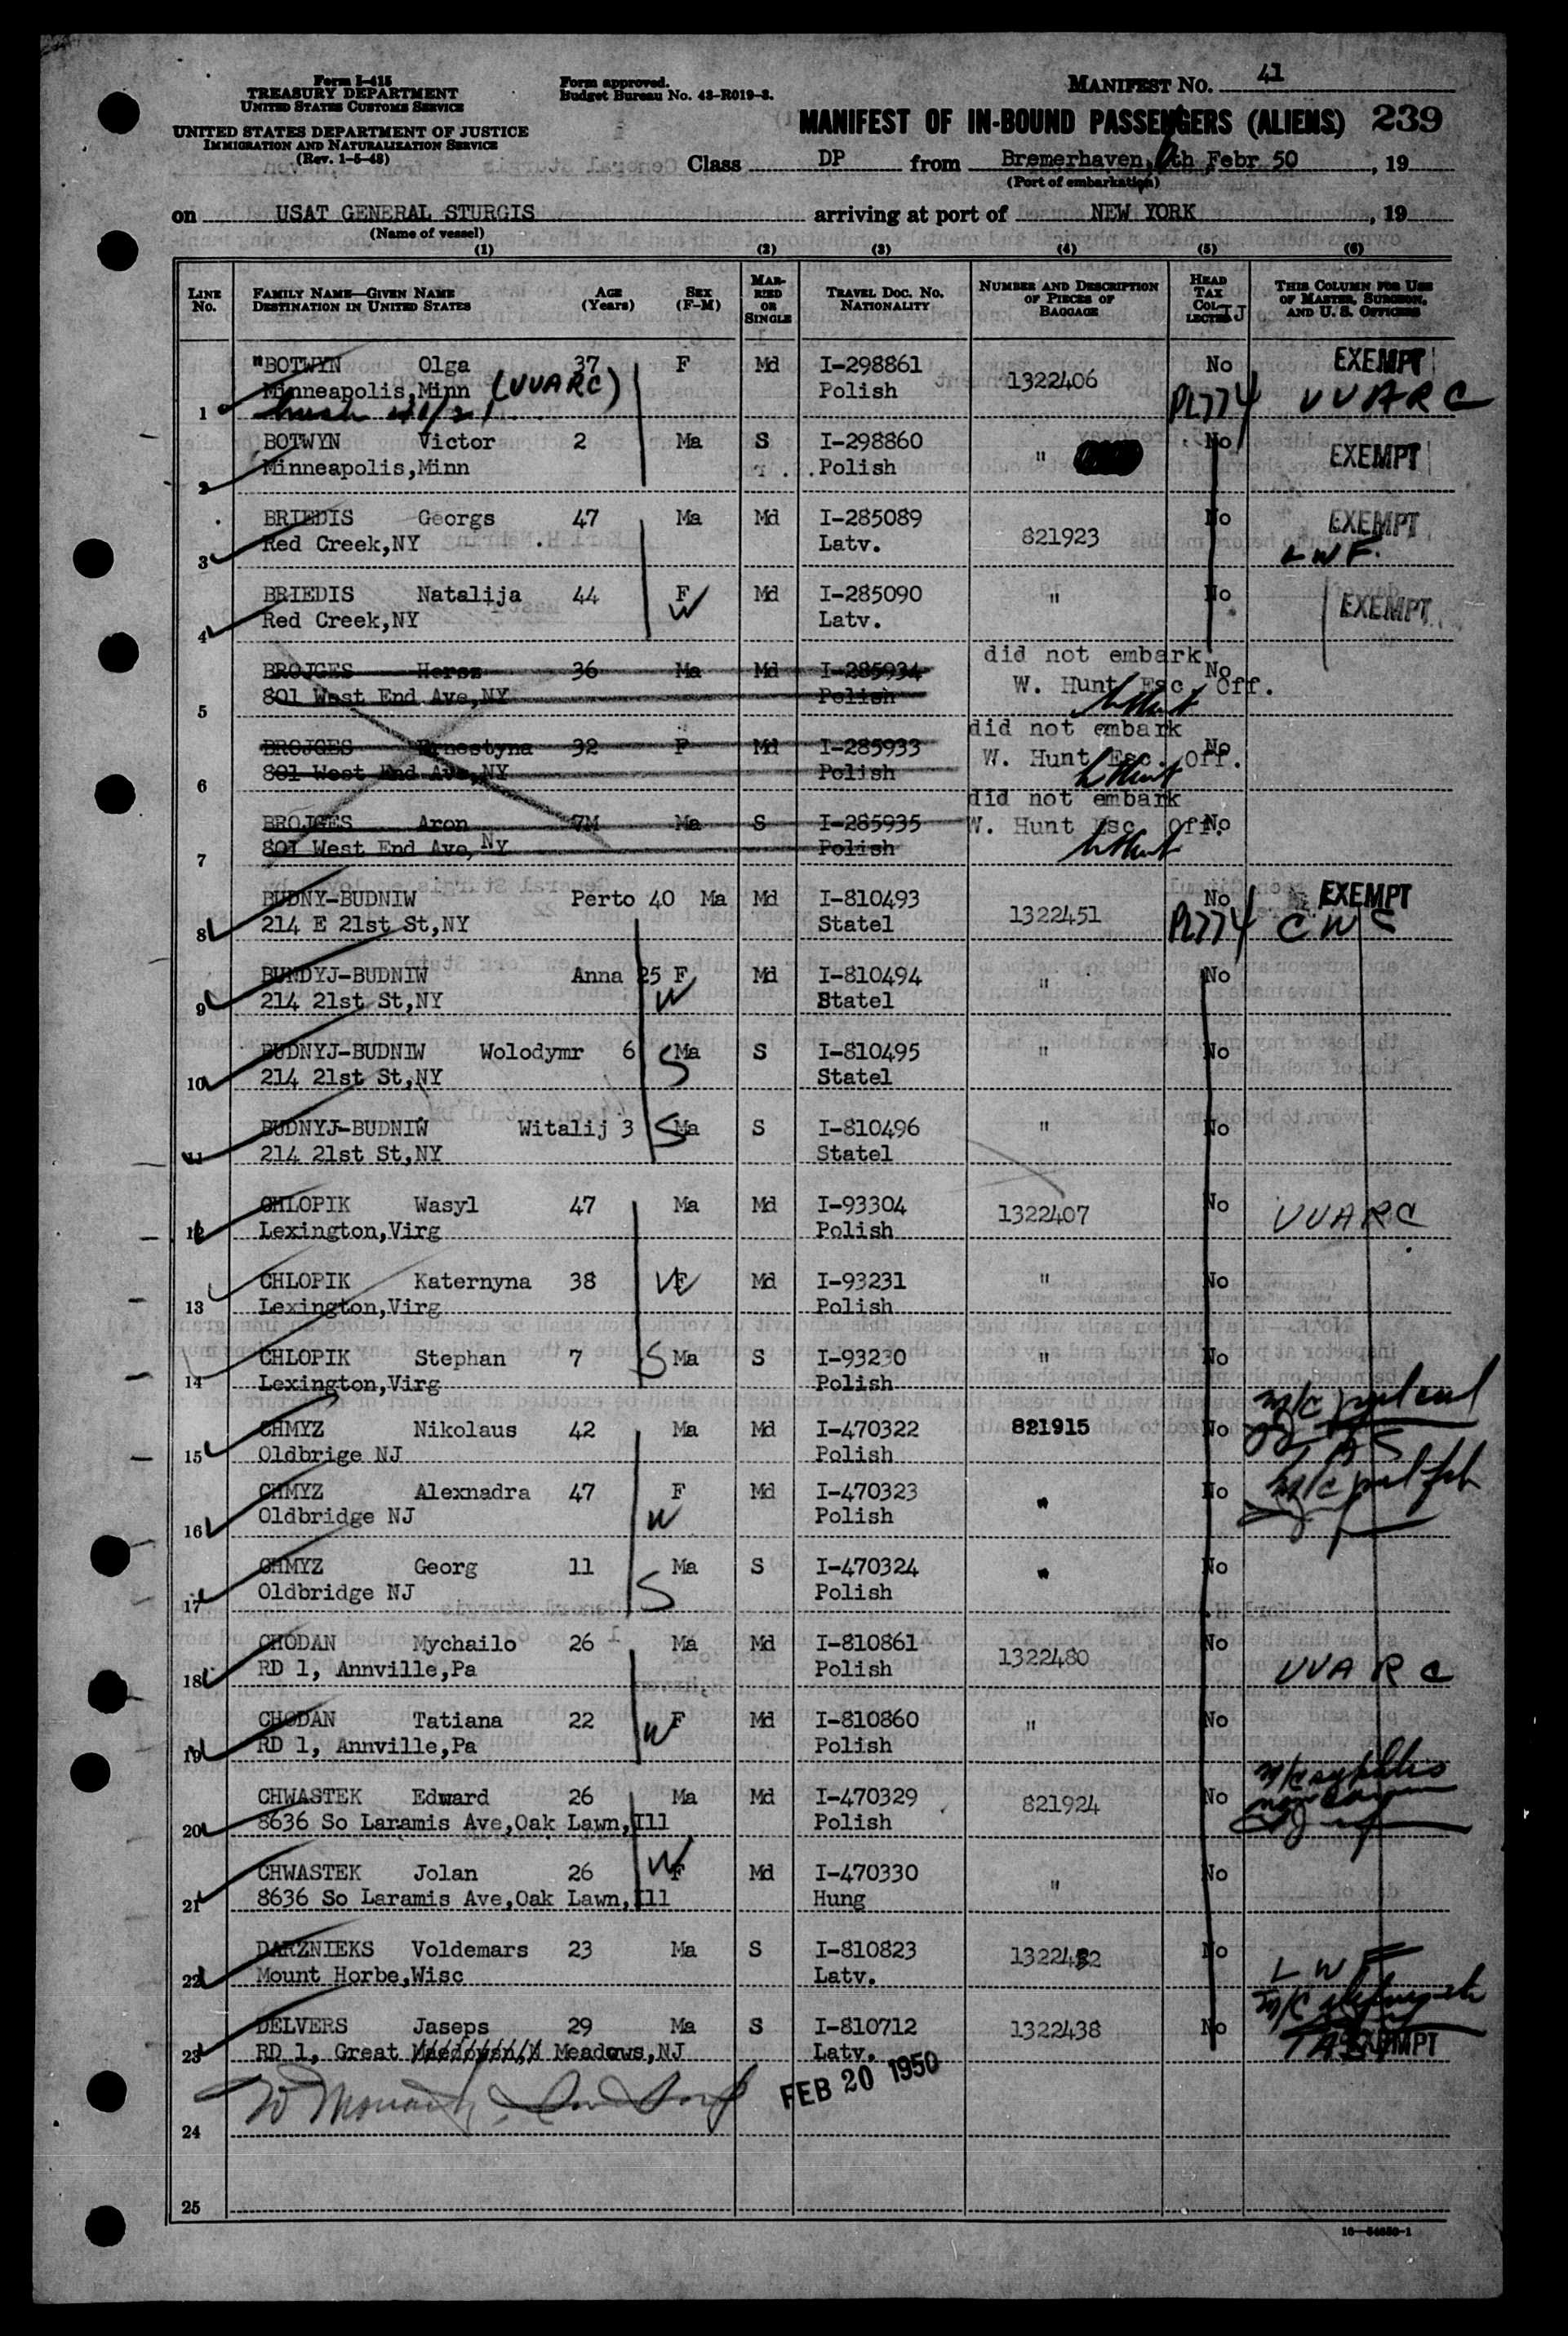 Form I-415
TREASURY DEPARTMENT
UNITED STATES CUSTOMS SERVICE
UNITED STATES DEPARTMENT OF JUSTICE
IMMIGRATION AND NATURALIZATION SERVICE
(Rev. 1-5-48)
Form approved.
Budget Bureau No. 43-R019-3.
MANIFEST No. 41
MANIFEST OF IN-BOUND PASSENGERS (ALIENS) 239
Class DP from Bremerhaven, th Febr 50, 19
(Port of embarkation)
on USAT GENERAL STURGIS arriving at port of NEW YORK, 19
(Name of vessel)
(1) (2) (3) (4) (5) (6)
LINE No. FAMILY NAME—GIVEN NAME DESTINATION IN UNITED STATES AGE (Years) SEX (F-M) MARRIED OR SINGLE TRAVEL DOC. NO. NATIONALITY NUMBER AND DESCRIPTION OF PIECES OF BAGGAGE HEAD TAX COLLECTED IJ THIS COLUMN FOR USE OF MASTER, SURGEON, AND U. S. OFFICERS
"BOTWYN Olga 37 F Md I-298861 1322406 No EXEMPT
1 Minneapolis,Minn (VVARC) Polish PL774 VVARC
BOTWYN Victor 2 Ma S I-298860 " No EXEMPT
2 Minneapolis,Minn Polish
BRIEDIS Georgs 47 Ma Md I-285089 821923 No EXEMPT
3 Red Creek,NY Latv. LWF.
BRIEDIS Natalija 44 F W Md I-285090 " No EXEMPT
4 Red Creek,NY Latv.
BROJGES Hersz 36 Ma Md I-285934 did not embark No
5 801 West End Ave,NY Polish W. Hunt Esc. Off.
BROJGES Ernestyna 32 F Md I-285933 did not embark No
6 801 West End Ave,NY Polish W. Hunt Esc. Off.
BROJGES Aron 7M Ma S I-285935 did not embark No
7 801 West End Ave,NY Polish W. Hunt Esc. Off.
BUDNY-BUDNIW Perto 40 Ma Md I-810493 1322451 No EXEMPT
8 214 E 21st St,NY Statel PL774 CWS
BUNDYJ-BUDNIW Anna 25 F W Md I-810494 " No
9 214 21st St,NY Statel
BUDNYJ-BUDNIW Wolodymr 6 S Ma S I-810495 " No
10 214 21st St,NY Statel
BUDNYJ-BUDNIW Witalij 3 S Ma S I-810496 " No
11 214 21st St,NY Statel
CHLOPIK Wasyl 47 Ma Md I-93304 1322407 No VVARC
12 Lexington,Virg Polish
CHLOPIK Katernyna 38 W F Md I-93231 " No
13 Lexington,Virg Polish
CHLOPIK Stephan 7 S Ma S I-93230 " No
14 Lexington,Virg Polish
CHMYZ Nikolaus 42 Ma Md I-470322 821915 No
15 Oldbrige NJ Polish
CHMYZ Alexnadra 47 F W Md I-470323 " No
16 Oldbridge NJ Polish
CHMYZ Georg 11 S Ma S I-470324 " No
17 Oldbridge NJ Polish
CHODAN Mychailo 26 Ma Md I-810861 1322480 No
18 RD 1, Annville,Pa Polish VVARC
CHODAN Tatiana 22 W F Md I-810860 " No
19 RD 1, Annville,Pa Polish
CHWASTEK Edward 26 Ma Md I-470329 821924 No
20 8636 So Laramis Ave,Oak Lawn,Ill Polish
CHWASTEK Jolan 26 W F Md I-470330 " No
21 8636 So Laramis Ave,Oak Lawn,Ill Hung
DARZNIEKS Voldemars 23 Ma S I-810823 No
22 Mount Horbe,Wisc Latv. LWF
DELVERS Jaseps 29 Ma S I-810712 1322438 No
23 RD 1, Great Meadows,NJ Latv. EXEMPT
FEB 20 1950
24
25